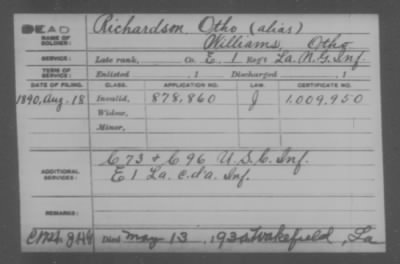 DEAD
NAME OF SOLDIER:
Richardson, Otho (alias)
Williams, Otho
SERVICE:
Late rank, Co. E, 1 Reg't La. N.G. Inf.
TERM OF SERVICE:
Enlisted , 1 Discharged , 1
DATE OF FILING. CLASS. APPLICATION NO. LAW. CERTIFICATE NO.
1890, Aug. 18 Invalid, 878,860 J 1,009,950
Widow,
Minor,
ADDITIONAL SERVICES:
C 73 & C 96 U.S.C. Inf.
E 1 La. c.d'a. Inf.
REMARKS:
Died May 13, 193 Wakefield, La